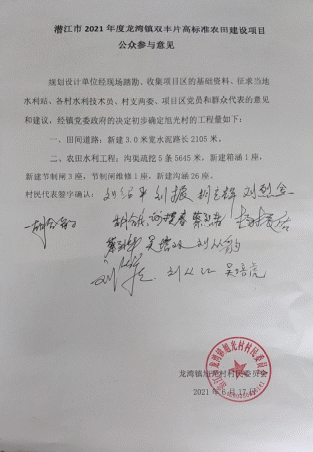 潜江市 2021 年度龙湾镇双丰片高标准农田建设项目
公众参与意见
规划设计单位经现场踏勘、收集项目区的基础资料、征求当地
水利站，各村水利技术员、村支两委、项目区党员和群众代表的意见
和建议，经镇党委政府的决定初步确定旭光村的工程量如下：
一、田间道路：新建 3.0 米宽水泥路长 2105 米。
二、农田水利工程：沟渠疏挖 5 条 5645 米，新建箱涵 1 座，
新建节制闸 3 座，节制闸维修 1 座，新建沟涵 26 座。
村民代表签字确认：
刘从江 吴培虎
龙湾镇旭光村村民委员会
2021 年 6 月 17 日